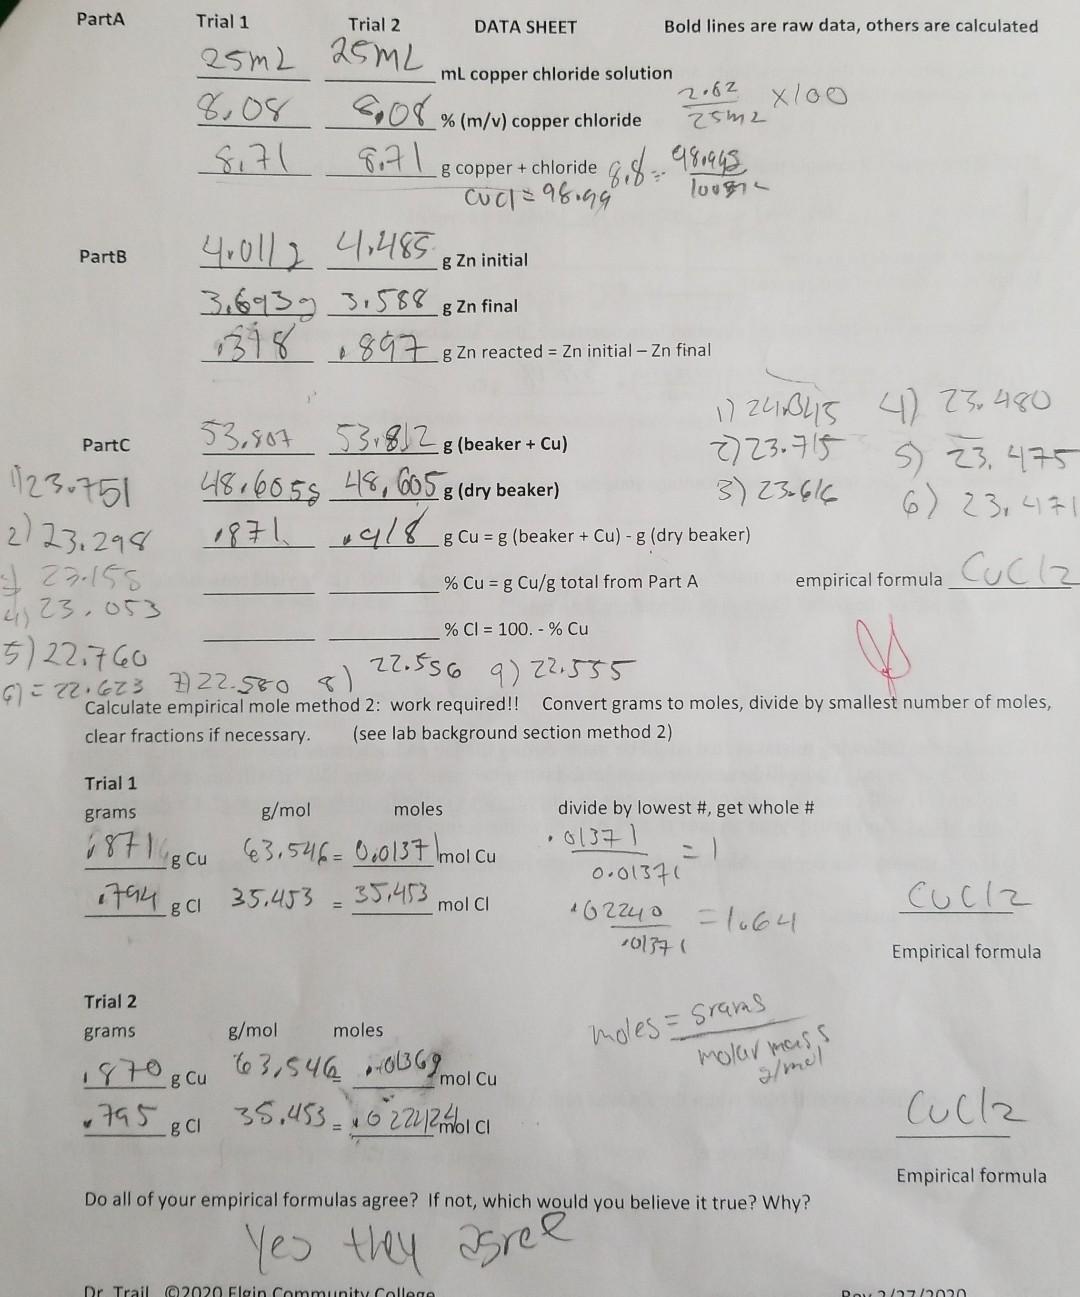 PartA Trial 1 Trial 2 DATA SHEET Bold lines are raw data, others are calculated
25mL 25mL mL copper chloride solution
8.08 8.08 % (m/v) copper chloride 2.62 / 25mL X100
8.71 8.71 g copper + chloride 8.8 =
CUCl = 98.99
PartB 4.011g 4.485 g Zn initial
3.693g 3.588 g Zn final
.318 .897 g Zn reacted = Zn initial – Zn final
1) 24.345 4) 23.480
PartC 53.807 53.812 g (beaker + Cu) 2) 23.715 5) 23.475
1) 23.751 48.605g 48,605 g (dry beaker) 3) 23.616 6) 23.471
2) 23.298 .871 .918 g Cu = g (beaker + Cu) - g (dry beaker)
3) 23.155 % Cu = g Cu/g total from Part A empirical formula CuCl2
4) 23.053
% Cl = 100. - % Cu
5) 22.760
6) = 22.623 7) 22.580 8) 22.556 9) 22.555
Calculate empirical mole method 2: work required!! Convert grams to moles, divide by smallest number of moles,
clear fractions if necessary. (see lab background section method 2)
Trial 1
grams g/mol moles divide by lowest #, get whole #
.871 g Cu 63.546 = 0.01371 mol Cu .01371 / 0.01371 = 1
.794 g Cl 35.453 = 35.453 mol Cl .02240 / .01371 = 1.64 CuCl2
Empirical formula
Trial 2
grams g/mol moles moles = grams / molar mass g/mol
.870 g Cu 63,546 = .01369 mol Cu
.795 g Cl 35.453 = .022424 mol Cl CuCl2
Empirical formula
Do all of your empirical formulas agree? If not, which would you believe it true? Why?
Yes they agree
Dr. Trail ©2020 Elgin Community College Rev 2/27/2020